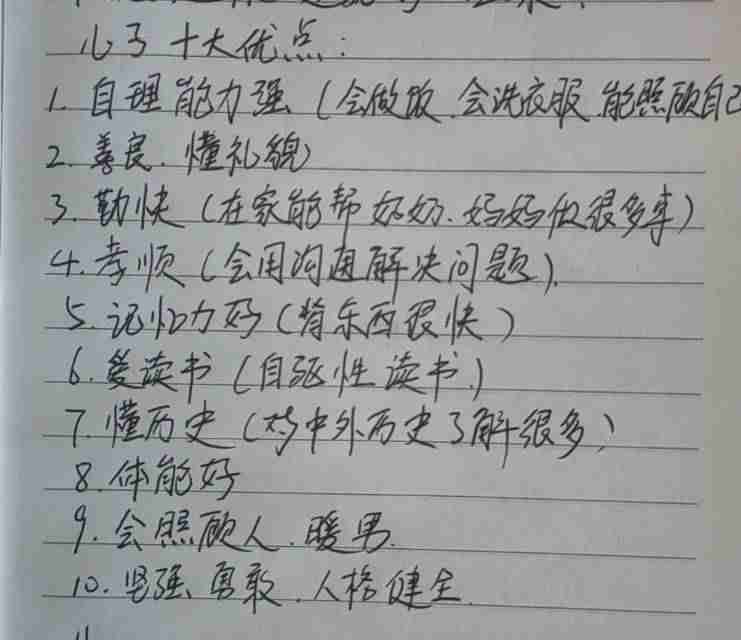 儿子十大优点:
1. 自理能力强（会做饭.会洗衣服.能照顾自己
2. 善良.懂礼貌)
3. 勤快（在家能帮奶奶.妈妈做很多事）
4. 孝顺（会用沟通解决问题）.
5. 记忆力好（背东西很快）
6. 爱读书（自驱性读书.）
7. 懂历史（对中外历史了解很多）
8. 体能好
9. 会照顾人.暖男.
10. 坚强、勇敢.人格健全.